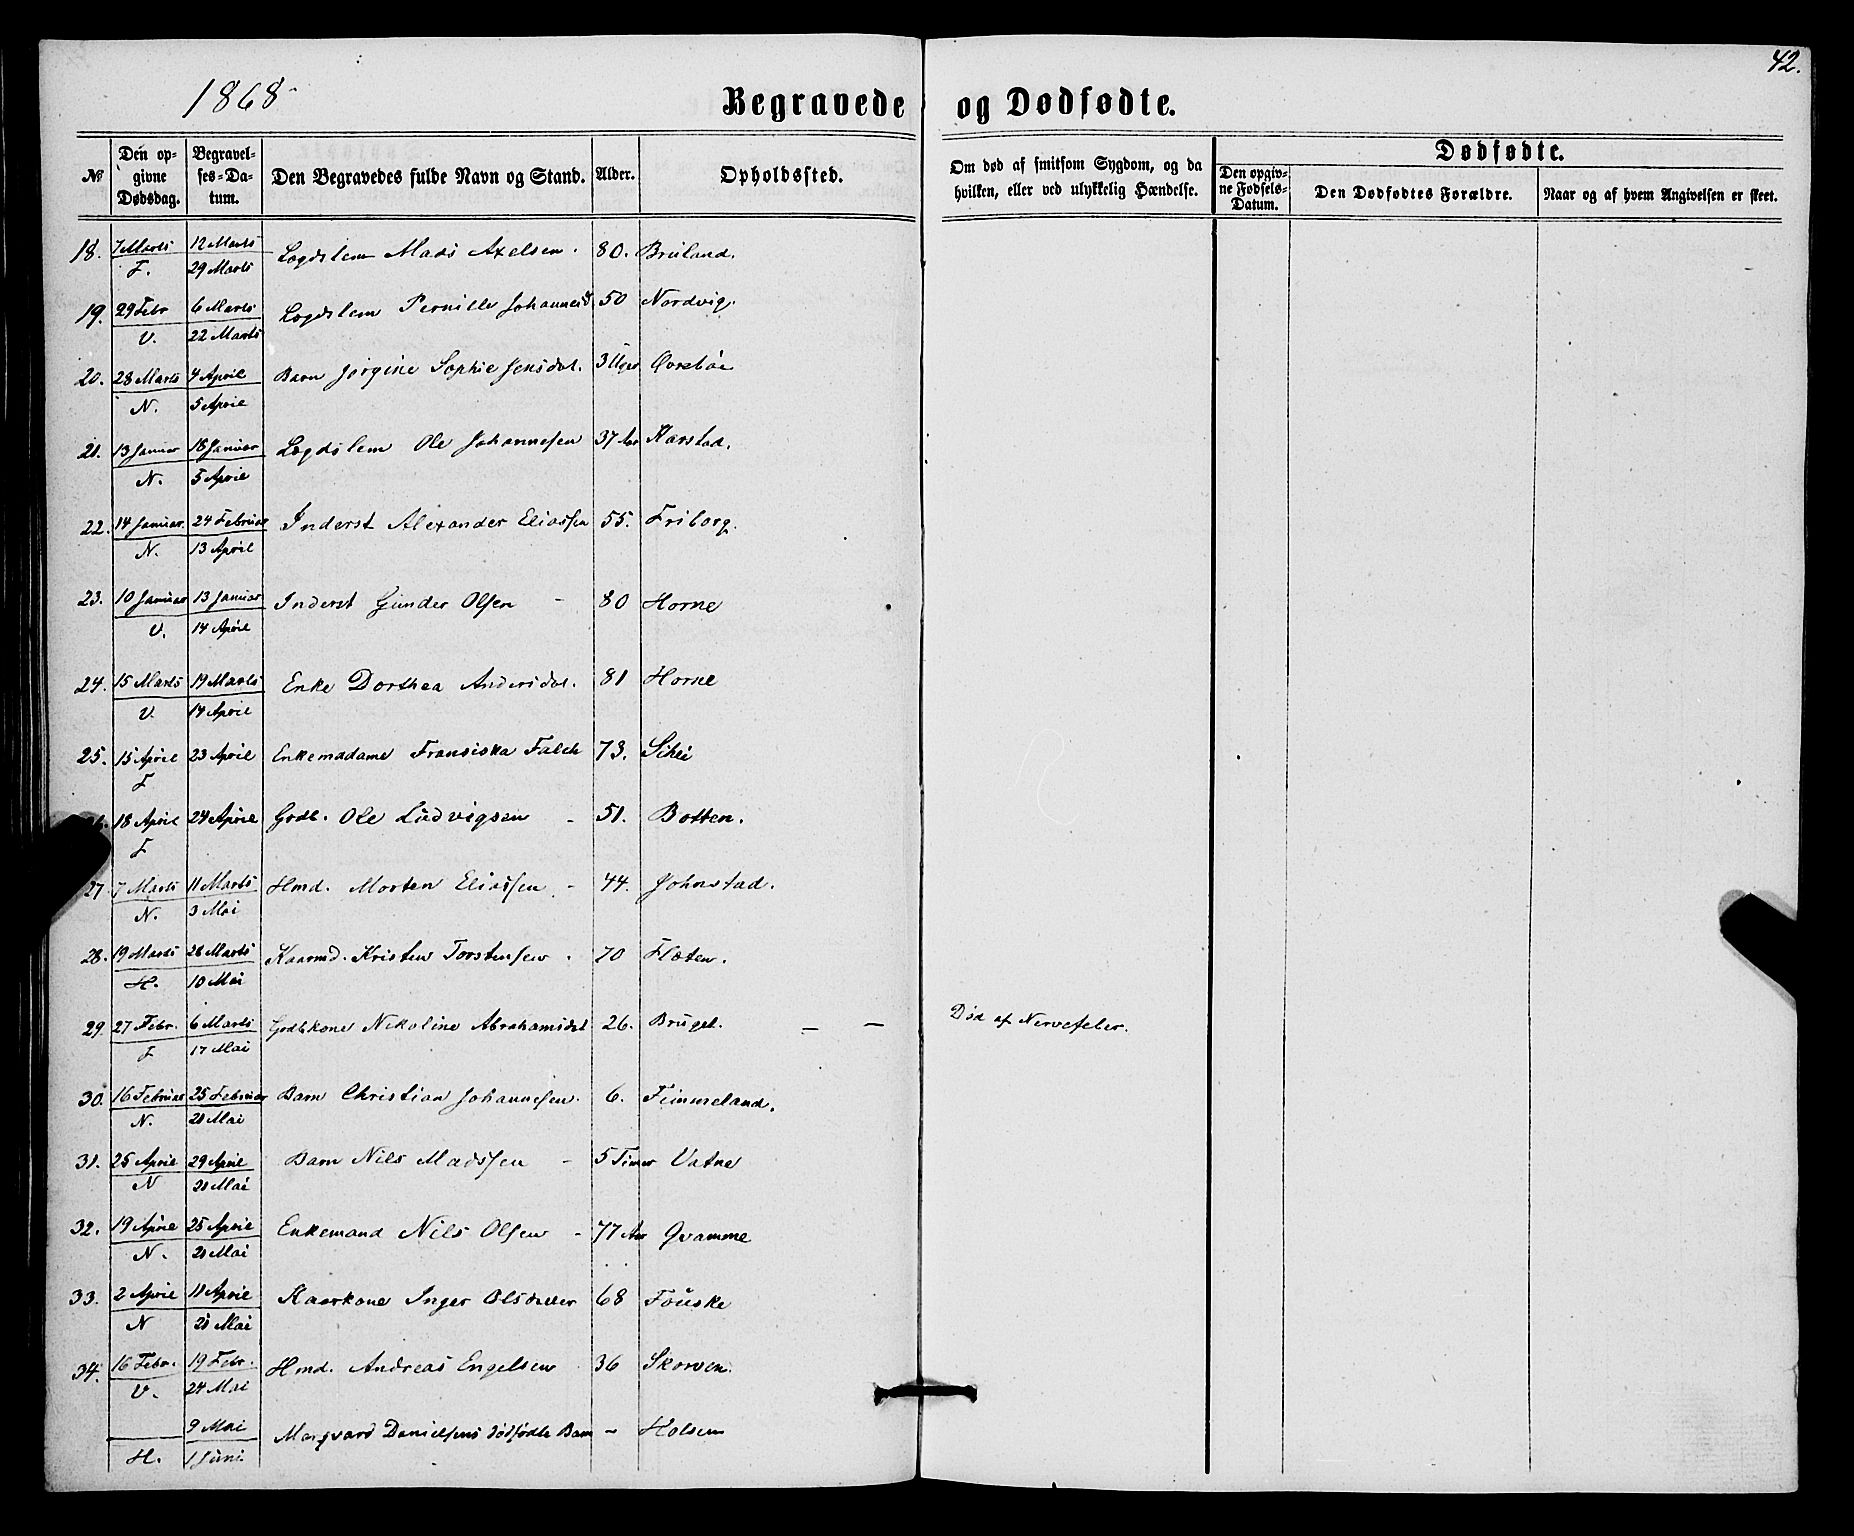 42.
1868
Begravede og Dødfødte.
№ Den opgivne Dødsdag. Begravelses-Datum. Den Begravedes fulde Navn og Stand. Alder. Opholdssted. Om død af smitsom Sygdom, og da hvilken, eller ved ulykkelig Hændelse. Dødfødte. Den opgivne Fødsels-Datum. Den Dødfødtes Forældre. Naar og af hvem Angivelsen er skeet.
18. 7 Marts 12 Marts Lægdslem Mads Axelsen. 80. Bruland.
F. 29 Marts
19. 29 Febr 6 Marts Lægdslem Pernille Johannesd 50 Nordvig.
V. 22 Marts
20. 28 Marts 4 April Barn Jørgine Sophie Jensdat. 3 Uger
N. 5 April
21. 13 Januar 18 Januar Lægdslem Ole Johannesen 37 Aar Karstad.
N. 5 April
22. 14 Januar. 24 Februar Inderst Alexander Eliassen 55. Friborg.
N. 13 April
23. 10 Januar 13 Januar Inderst Gunder Olsen - 80 Horne
V. 14 April
24. 15 Marts 19 Marts Enke Dorthea Andersdat. 81 Horne
V. 14 April
25. 15 April 23 April Enkemadame Fransiska Falch 73.
F
18 April 24 April Grdb. Ole Ludvigsen - 51. Botten.
F
27. 7 Marts 11 Marts Hmd. Morten Eliassen - 44. Johnstad.
N. 3 Mai
28. 19 Marts 26 Marts Kaarmd. Kristen Torstensen. 70 Flæten.
H. 10 Mai
29. 27 Febr. 6 Marts Grdbkone Nikoline Abrahamsdat 26. Bruget. - - Død af Nervefeber.
F 17 Mai
30. 16 Februar 25 Februar Barn Christian Johannesen. 6. Fimmeland.
N. 21 Mai
31. 25 April 29 April Barn Nils Madssen - 5 Timer Vatne
N 21 Mai
32. 19 April 25 April Enkemand Nils Olsen - 77 Aar Qvamme
N. 21 Mai
33. 2 April 11 April Kaarkone Inger Olsdatter 68 Fouske
N 21 Mai
34. 16 Febr. 19 Febr. Hmd. Andreas Engelsen 36 Skorven.
V. 24 Mai
9 Mai Margvard Danielsens dødfødte Barn - Holsen
H. 1 Juni.